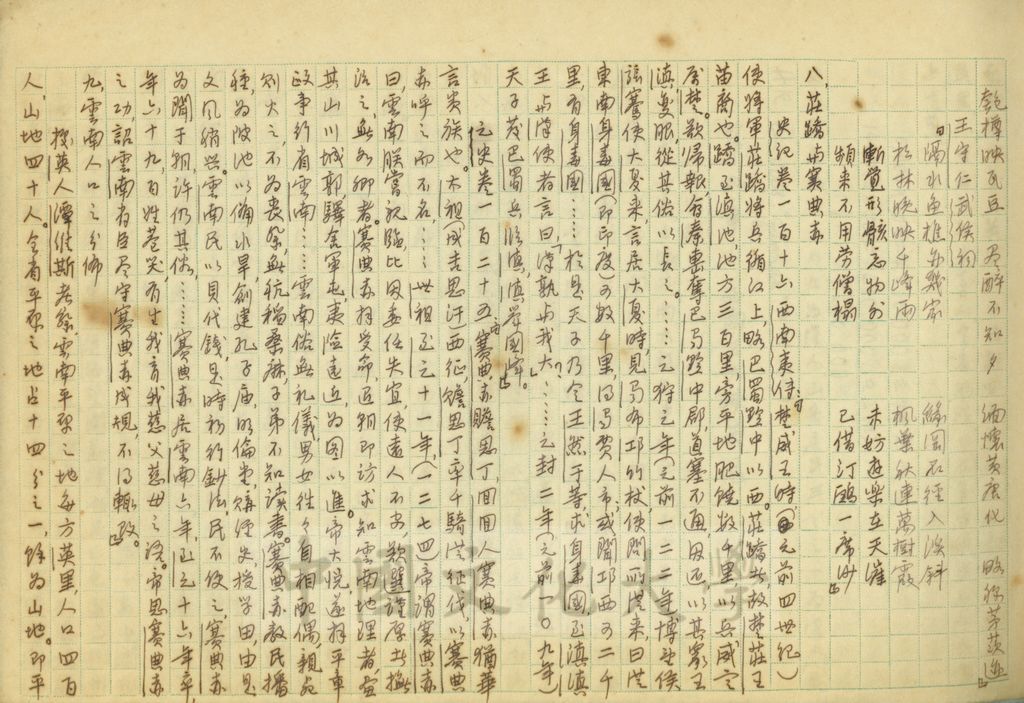 乾樽映瓦豆　尽醉不知夕　緬懷黃唐代　略
王守仁武侯祠
隔水魚樵亦幾家　緣岡石徑入溪斜
松林晚映千峰雨　楓葉秋連萬樹霞
漸覺形骸忘物外　未妨遊樂在天涯
頻來不用勞僧榻　已借汀鷗一席沙」
八、莊蹻与賽典赤
史記卷一百十六西南夷傳：「楚威王時（元前四世紀）
使將軍莊蹻將兵循江上，略巴蜀黔中以西。莊蹻者故楚莊王
苗裔也。蹻至滇池，池方三百里，旁平地肥饒數千里，以兵威定
屬楚。欲歸報，會秦擊奪巴蜀黔中郡，道塞不通，因还，以其眾王
滇，变服，從其俗以長之。……元狩元年（元前一二二年）博望侯
張騫使大夏来，言居大夏時，見蜀布邛竹杖，使問所從来，曰從
東南身毒國（即印度）可数千里，得蜀賈人市，或聞邛西可二千
里，有身毒國……於是天子乃令王然于等，求身毒國，至滇，滇
王与漢使者言曰，「漢孰与我大」……元封二年（元前一〇九年）
天子发巴蜀兵，临滇，滇舉國降。」
元史卷一百二十五：「賽典赤贍思丁，回回人，賽典赤猶華
言贵族也。太祖（成吉思汗）西征，贍思丁率千騎從征伐，以賽典
赤呼之而不名……世祖至元十一年（一二七四）帝謂賽典赤
曰，雲南朕嘗親臨，比因委任失宜，使遠人不安，欲選謹厚者撫
治之，無如卿者。賽典赤拜受命，退朝即访求知雲南地理者，画
其山川城郭驛舍軍屯夷险遠近为图以進。帝大悅，遂拜平章
政事行省雲南……雲南俗無礼儀，男女往々自相配偶，親死
則火之，不為丧祭，無秔稻桑麻，子弟不知读書。賽典赤教民播
種，為陂池以備水旱，創建孔子庙，明倫堂，購经史，授学田，由是
文風稍兴。雲南民以貝代錢，是時初行鈔法，民不便之，賽典赤
為聞于朝，許仍其俗……賽典赤居雲南六年，至元十六年卒，
年六十九，百姓巷哭，有生我育我慈父慈母之語。帝思賽典赤
之功，詔雲南省臣尽守賽典赤成規，不得輒改。」
九、雲南人口之分佈
按英人漂維斯考察雲南平原之地每方英里，人口四百
人，山地四十人。全省平原之地占十四分之一，餘為山地。即平
中国文化大學